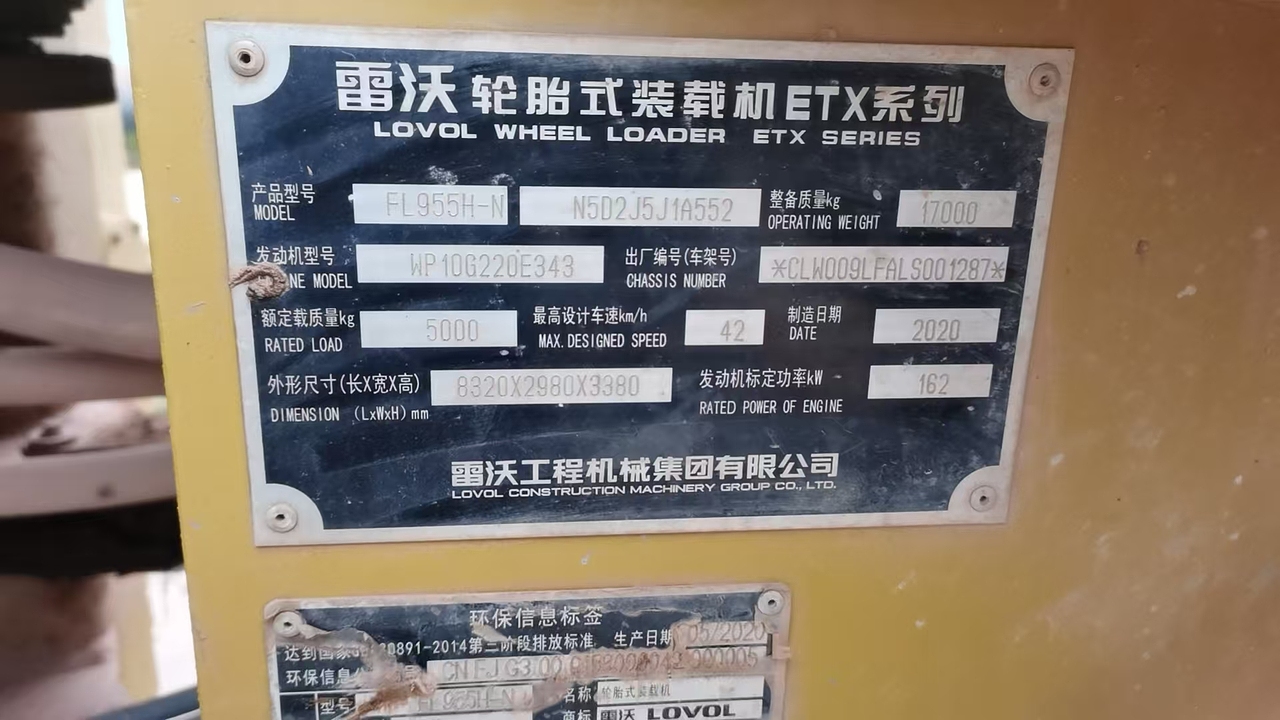 雷沃轮胎式装载机ETX系列
LOVOL WHEEL LOADER ETX SERIES
产品型号 FL955H-N N5D2J5J1A552 整备质量kg 17000
MODEL OPERATING WEIGHT
发动机型号 WP10G220E343 出厂编号(车架号) *CLW009LFALS001287*
NE MODEL CHASSIS NUMBER
额定载质量kg 5000 最高设计车速km/h 42 制造日期 2020
RATED LOAD MAX.DESIGNED SPEED DATE
外形尺寸(长X宽X高) 8320X2980X3380 发动机标定功率kW 162
DIMENSION (LxWxH)mm RATED POWER OF ENGINE
雷沃工程机械集团有限公司
LOVOL CONSTRUCTION MACHINERY GROUP CO., LTD.
环保信息标签
达到国家 20891-2014第三阶段排放标准 生产日期 05/2020
环保信息公 CN FJ G3 00 000005
型号 FL955H-N 名称 轮胎式装载机
商标 雷沃 LOVOL